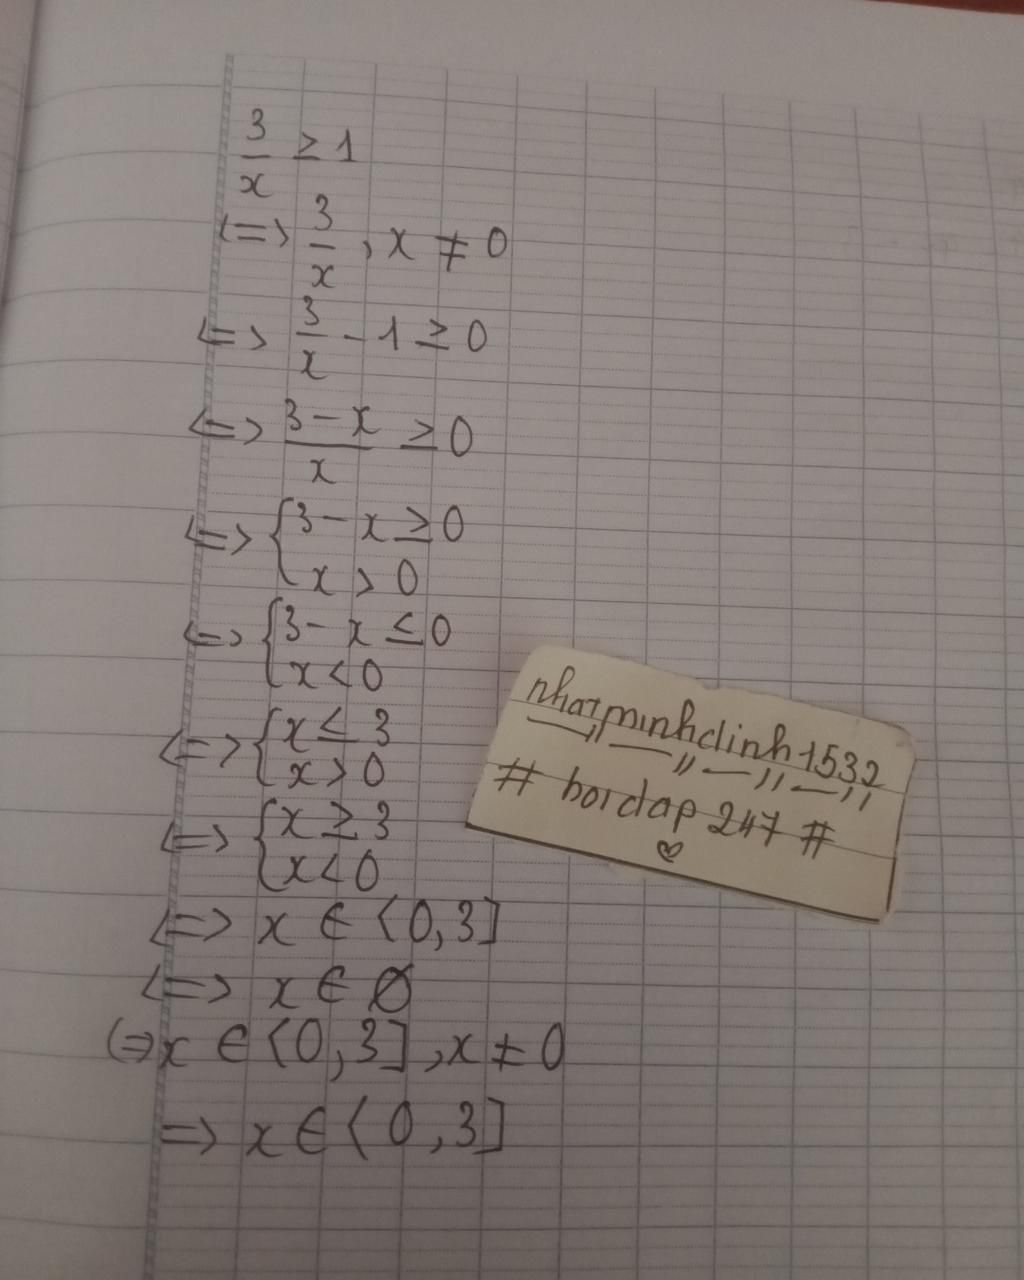 3/x ≥ 1
<=> 3/x , x ≠ 0
<=> 3/x - 1 ≥ 0
<=> 3 - x / x ≥ 0
<=> { 3 - x ≥ 0
x > 0
<=> { 3 - x ≤ 0
x < 0
<=> { x ≤ 3
x > 0
<=> { x ≥ 3
x < 0
<=> x ∈ (0,3]
<=> x ∈ ∅
<=> x ∈ (0,3] , x ≠ 0
=> x ∈ (0,3]
nhatminhdinh1532
# hoidap 247 #
♡